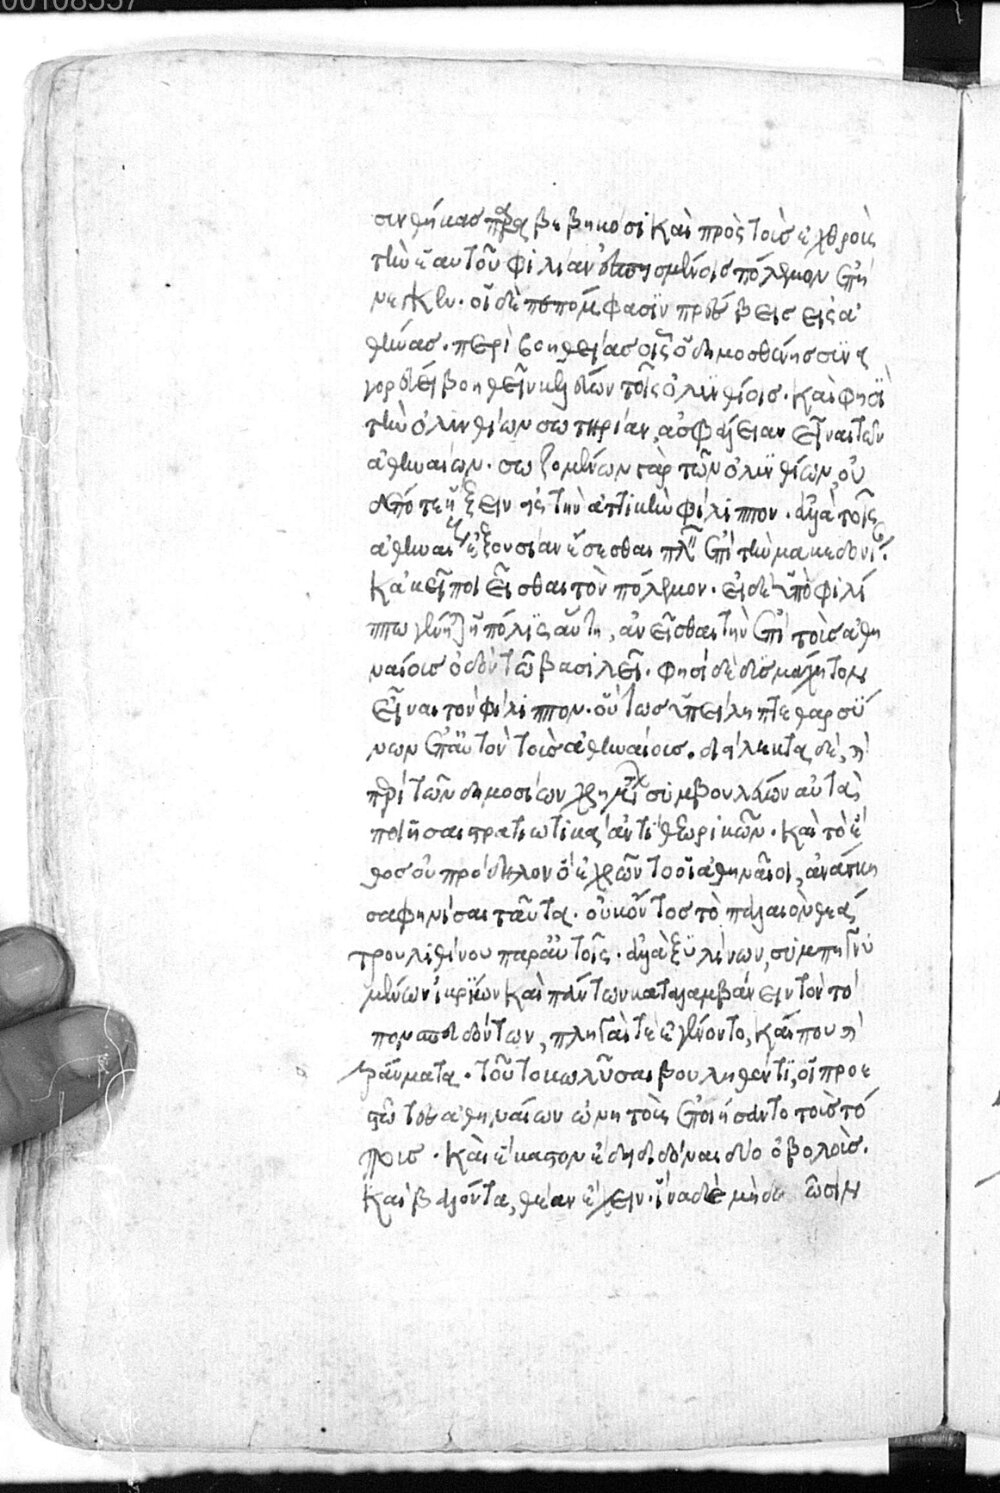 00108337
συνθήκας παραβεβηκόσι καὶ πρὸς τοὺς ἐχθροὺς
τὴν ἑαυτοῦ φιλίαν σπεισαμένοις πόλεμον ἐπή
νεγκεν. οἱ δὲ πεπόμφασιν πρέσβεις εἰς ἀ
θήνας. περὶ βοηθείας οἷς ὁ δημοσθένης συνη
γορεῖ βοηθεῖν κελεύων τοῖς ὀλυνθίοις. καὶ φησὶ
τὴν ὀλυνθίων σωτηρίαν, ἀσφάλειαν εἶναι τῶν
ἀθηναίων. σωζομένων γὰρ τῶν ὀλυνθίων, οὐ
δέποτε ἥξειν εἰς τὴν ἀττικὴν φίλιππον. ἀλλὰ τοῖς
ἀθηναίοις ἐξουσίαν ἔσεσθαι πλεῖν ἐπὶ τὴν μακεδονίαν.
κἀκεῖ ποιεῖσθαι τὸν πόλεμον. εἰ δὲ ὑπὸ φιλί
ππω γένηται ἡ πόλις αὕτη, ἀνεῖσθαι τὴν ἐπὶ τοὺς ἀθη
ναίους ὁδὸν τῶ βασιλεῖ. φησὶ δὲ δύσμαχητον
εἶναι τὸν φίλιππον. οὕτως ὑπείληπτε θαρσύ
νων ἐπ' αὐτὸν τοὺς ἀθηναίους. διείλεκται δὲ, καὶ
περὶ τῶν δημοσίων χρημάτων συμβουλεύων αὐτὰ
ποιῆσαι στρατιωτικὰ ἀντὶ θεωρικῶν. καὶ τὸ ἔ
θος οὐ πρόδηλον ὃ ἐχρῶντο οἱ ἀθηναῖοι, ἀνάγκη
σαφηνίσαι ταῦτα. οὐκ ὄντος τὸ παλαιὸν θεά
τρου λιθίνου παρ' αὐτοῖς. ἀλλὰ ξυλίνων, συμπηγνυ
μένων ἰκρίων καὶ πάντων καταλαμβάνειν τὸν τό
πον σπευδόντων, πληγαί τε ἐγένοντο, καί που καὶ
τραύματα. τοῦτο κωλῦσαι βουληθέντες, οἱ προε
στῶτες ἀθηναίων ὠνητοὺς ἐποιήσαντο τοὺς τό
πους. καὶ ἕκαστον ἔδει διδόναι δύο ὀβολοὺς.
καὶ βαλόντα, θέαν ἔχειν. ἵνα δὲ μὴ δο ῶσιν